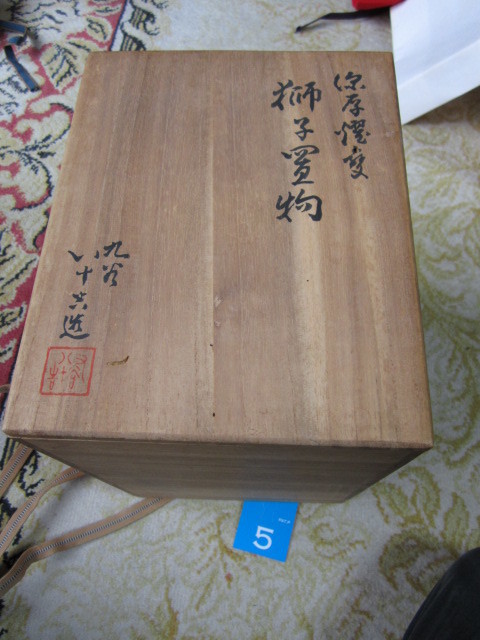 深厚燿変
獅子置物
九谷
八十吉造
5